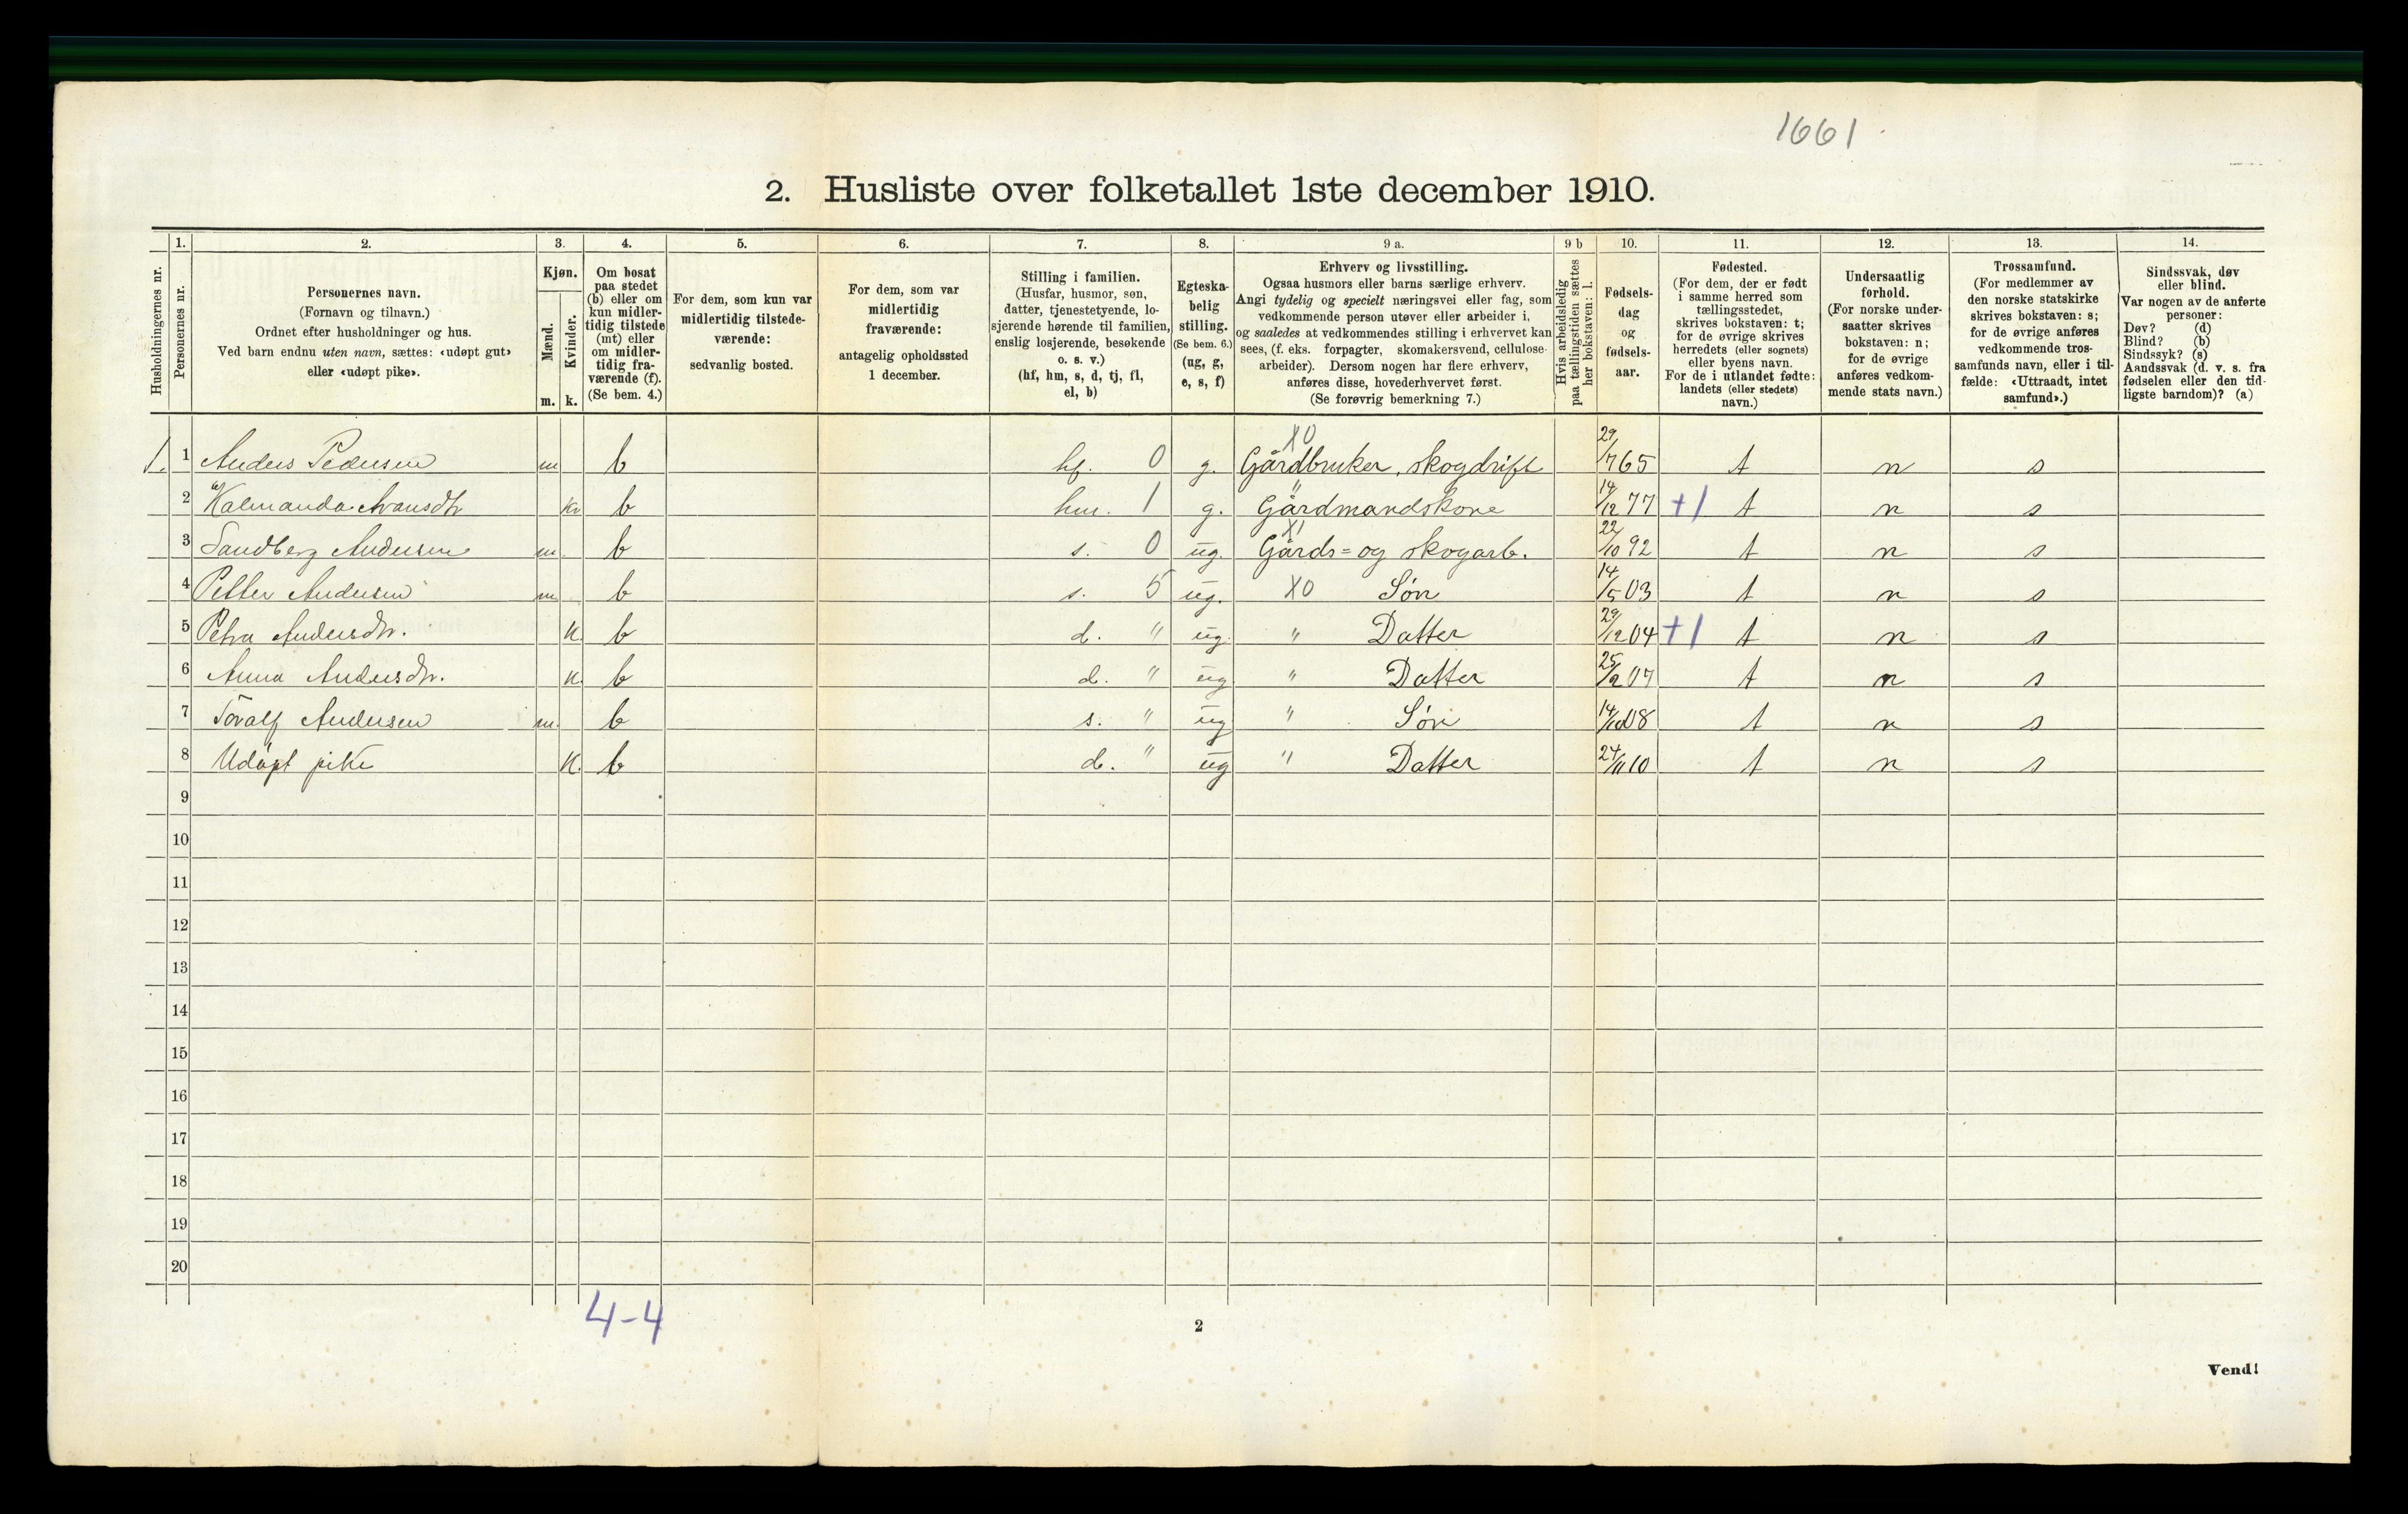 1661
2. Husliste over folketallet 1ste december 1910.
Husholdningernes nr.
1. Personernes nr.
2. Personernes navn.
(Fornavn og tilnavn.)
Ordnet efter husholdninger og hus.
Ved barn endnu uten navn, sættes: «udøpt gut»
eller «udøpt pike».
3. Kjøn.
Mænd. m.
Kvinder. k.
4. Om bosat
paa stedet
(b) eller om
kun midler-
tidig tilstede
(mt) eller
om midler-
tidig fra-
værende (f).
(Se bem. 4.)
5. For dem, som kun var
midlertidig tilstede-
værende:
sedvanlig bosted.
6. For dem, som var
midlertidig
fraværende:
antagelig opholdssted
1 december.
7. Stilling i familien.
(Husfar, husmor, søn,
datter, tjenestetyende, lo-
sjerende hørende til familien,
enslig losjerende, besøkende
o. s. v.)
(hf, hm, s, d, tj, fl,
el, b)
8. Egteska-
belig
stilling.
(Se bem. 6.)
(ug, g,
e, s, f)
9 a. Erhverv og livsstilling.
Ogsaa husmors eller barns særlige erhverv.
Angi tydelig og specielt næringsvei eller fag, som
vedkommende person utøver eller arbeider i,
og saaledes at vedkommendes stilling i erhvervet kan
sees, (f. eks. forpagter, skomakersvend, cellulose-
arbeider). Dersom nogen har flere erhverv,
anføres disse, hovederhvervet først.
(Se forøvrig bemerkning 7.)
9 b Hvis arbeidsledig
paa tællingstiden sættes
her bokstaven: l.
10. Fødsels-
dag
og
fødsels-
aar.
11. Fødested.
(For dem, der er født
i samme herred som
tællingsstedet,
skrives bokstaven: t;
for de øvrige skrives
herredets (eller sognets)
eller byens navn.
For de i utlandet fødte:
landets (eller stedets)
navn.)
12. Undersaatlig
forhold.
(For norske under-
saatter skrives
bokstaven: n;
for de øvrige
anføres vedkom-
mende stats navn.)
13. Trossamfund.
(For medlemmer av
den norske statskirke
skrives bokstaven: s;
for de øvrige anføres
vedkommende tros-
samfunds navn, eller i til-
fælde: «Uttraadt, intet
samfund».)
14. Sindssvak, døv
eller blind.
Var nogen av de anførte
personer:
Døv? (d)
Blind? (b)
Sindssyk? (s)
Aandssvak (d. v. s. fra
fødselen eller den tid-
ligste barndom)? (a)
1. 1 Anders Pedersen m b hf. 0 g. X0 Gårdbruker, skogdrift 29/7 65 t n s
2 k b hm. 1 g. " Gårdmandskone 14/12 77 +1 t n s
3 Sandberg Andersen m. b s. 0 ug. X1 Gårds= og skogarb. 22/10 92 t n s
4 Petter Andersen m b s. 5 ug. X0 Søn 14/5 03 t n s
5 Petra Andersdtr. k. b d. " ug. " Datter 29/12 04 +1 t n s
6 Anna Andersdtr. k. b d. " ug " Datter 25/2 07 t n s
7 Toralf Andersen m. b s. " ug " Søn 14/10 08 t n s
8 Udøpt pike k. b d. " ug " Datter 24/11 10 t n s
9
10
11
12
13
14
15
16
17
18
19
20
4-4
2
Vend!